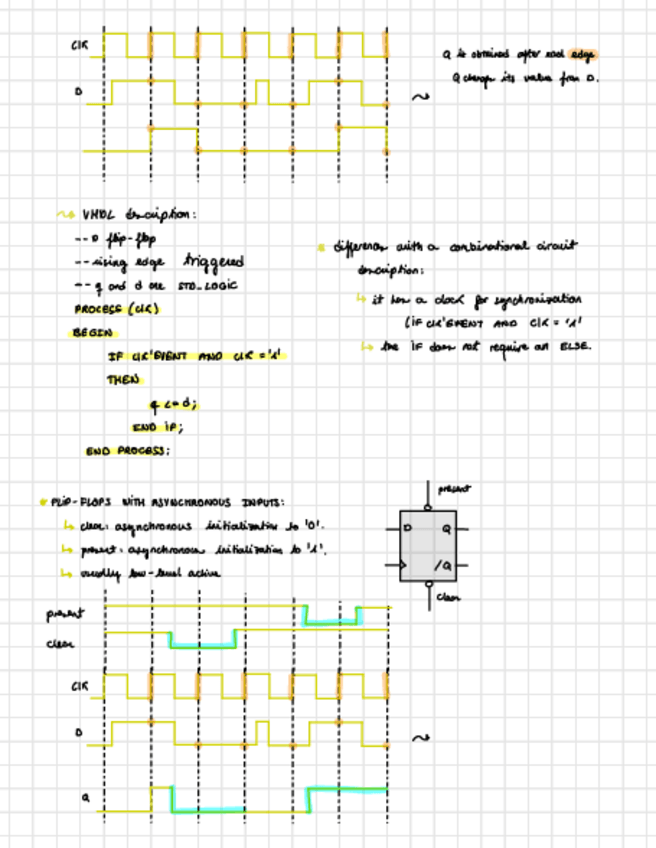 CLK
Q is obtained after each edge
D
Q change its value from D.
VHDL description:
-- D flip-flop
-- rising edge triggered
-- q and d are STD_LOGIC
PROCESS (clk)
BEGIN
IF clk'EVENT AND clk = '1'
THEN
q <= d;
END IF;
END PROCESS;
difference with a combinational circuit
description:
it has a clock for synchronization
(IF clk'EVENT AND clk = '1'
the IF does not require an ELSE.
FLIP-FLOPS WITH ASYNCHRONOUS INPUTS:
clear: asynchronous initialization to '0'.
present: asynchronous initialization to '1'.
usually low-level active
present
D Q
/Q
clear
present
clear
CLK
D
Q